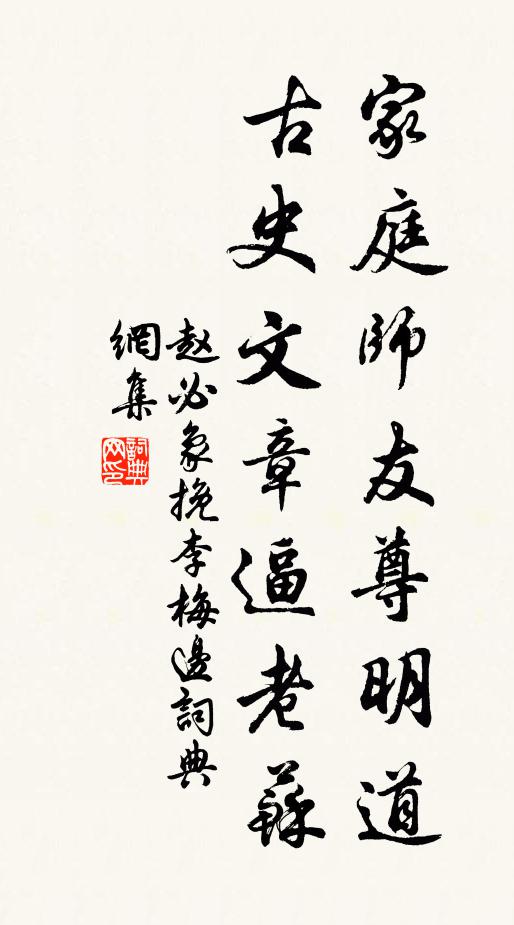 家庭師友尊明道
古史文章逼老蘇
赵必象挽李梅邊詞典
網集
詞典网印